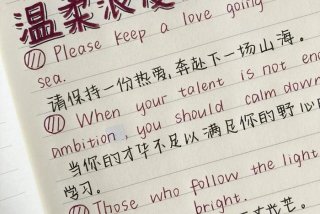 温柔浪漫
Please keep a love going
sea.
请保持一份热爱,奔赴下一场山海。
When your talent is not
ambition, you should calm down
当你的才华不足以满足你的野心
学习。
Those who follow the light
bright.
光芒。